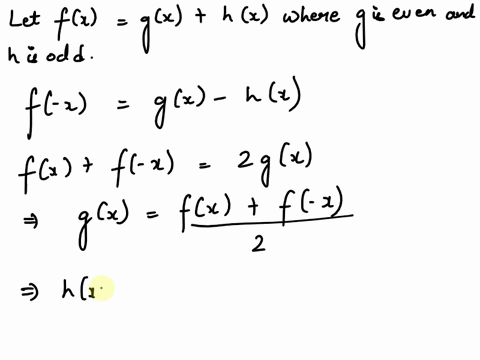 Let f(x) = g(x) + h(x) where g is even and
h is odd.
f(-x) = g(x) - h(x)
f(x) + f(-x) = 2g(x)
⇒ g(x) = f(x) + f(-x)
2
⇒ h(x